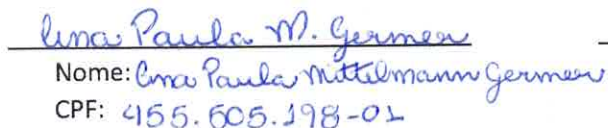 Ana Paula M. Germer
Nome: Ana Paula Mittelmann Germer
CPF: 455.605.198-01